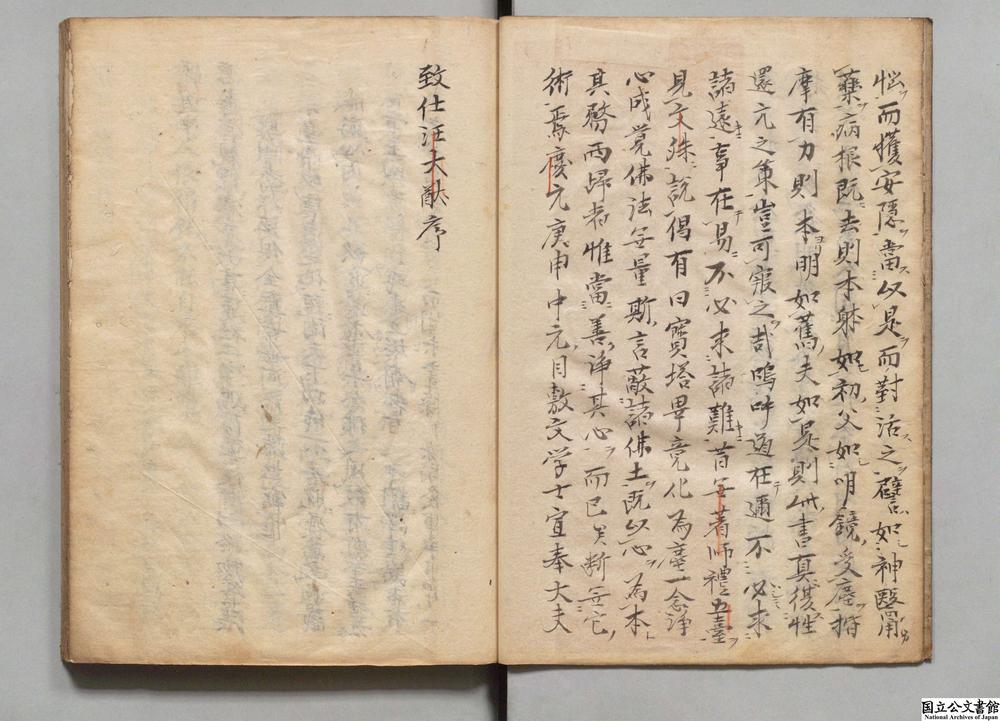 惱而獲安隱當以是而對治之譬如神醫用
藥病根既去則本躰如初又如明鏡受塵揩
摩有力則本明如舊夫如是則此書真復性
還元之筞豈可寂之哉嗚呼道在邇不必求
諸遠事在易不必求諸難昔無著師禮五臺
見文殊說偈有曰寶塔畢竟化為塵一念淨
心成覺佛法無量斯言蔽諸佛土既以心為本
其發而歸者惟當善淨其心而已矣斷無它
術焉慶元庚申中元日敷文学士宣奉大夫
致仕汪大猷序
国立公文書館
National Archives of Japan